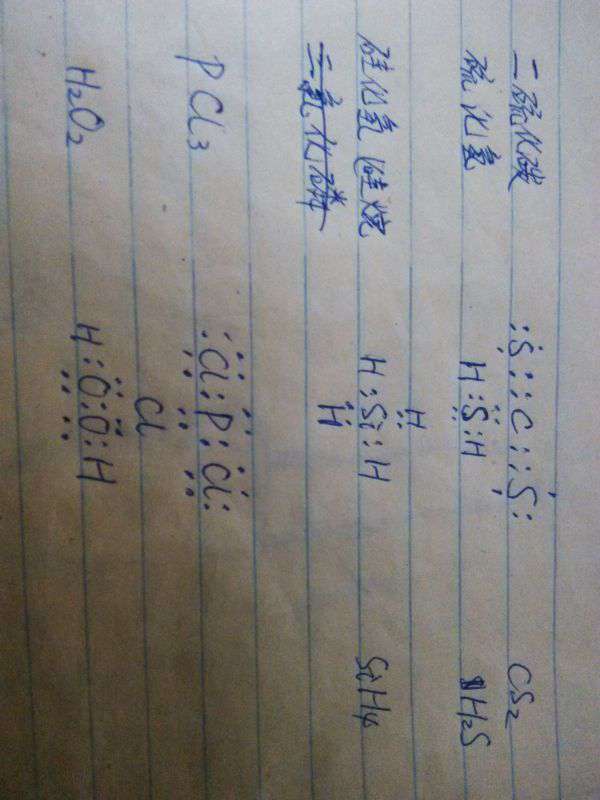 二硫化碳 :S::C::S: CS2
硫化氢 H:S:H H2S
H
硅化氢 硅烷 H:Si:H SiH4
H
PCl3 :Cl:P:Cl:
Cl
H2O2 H:O:O:H